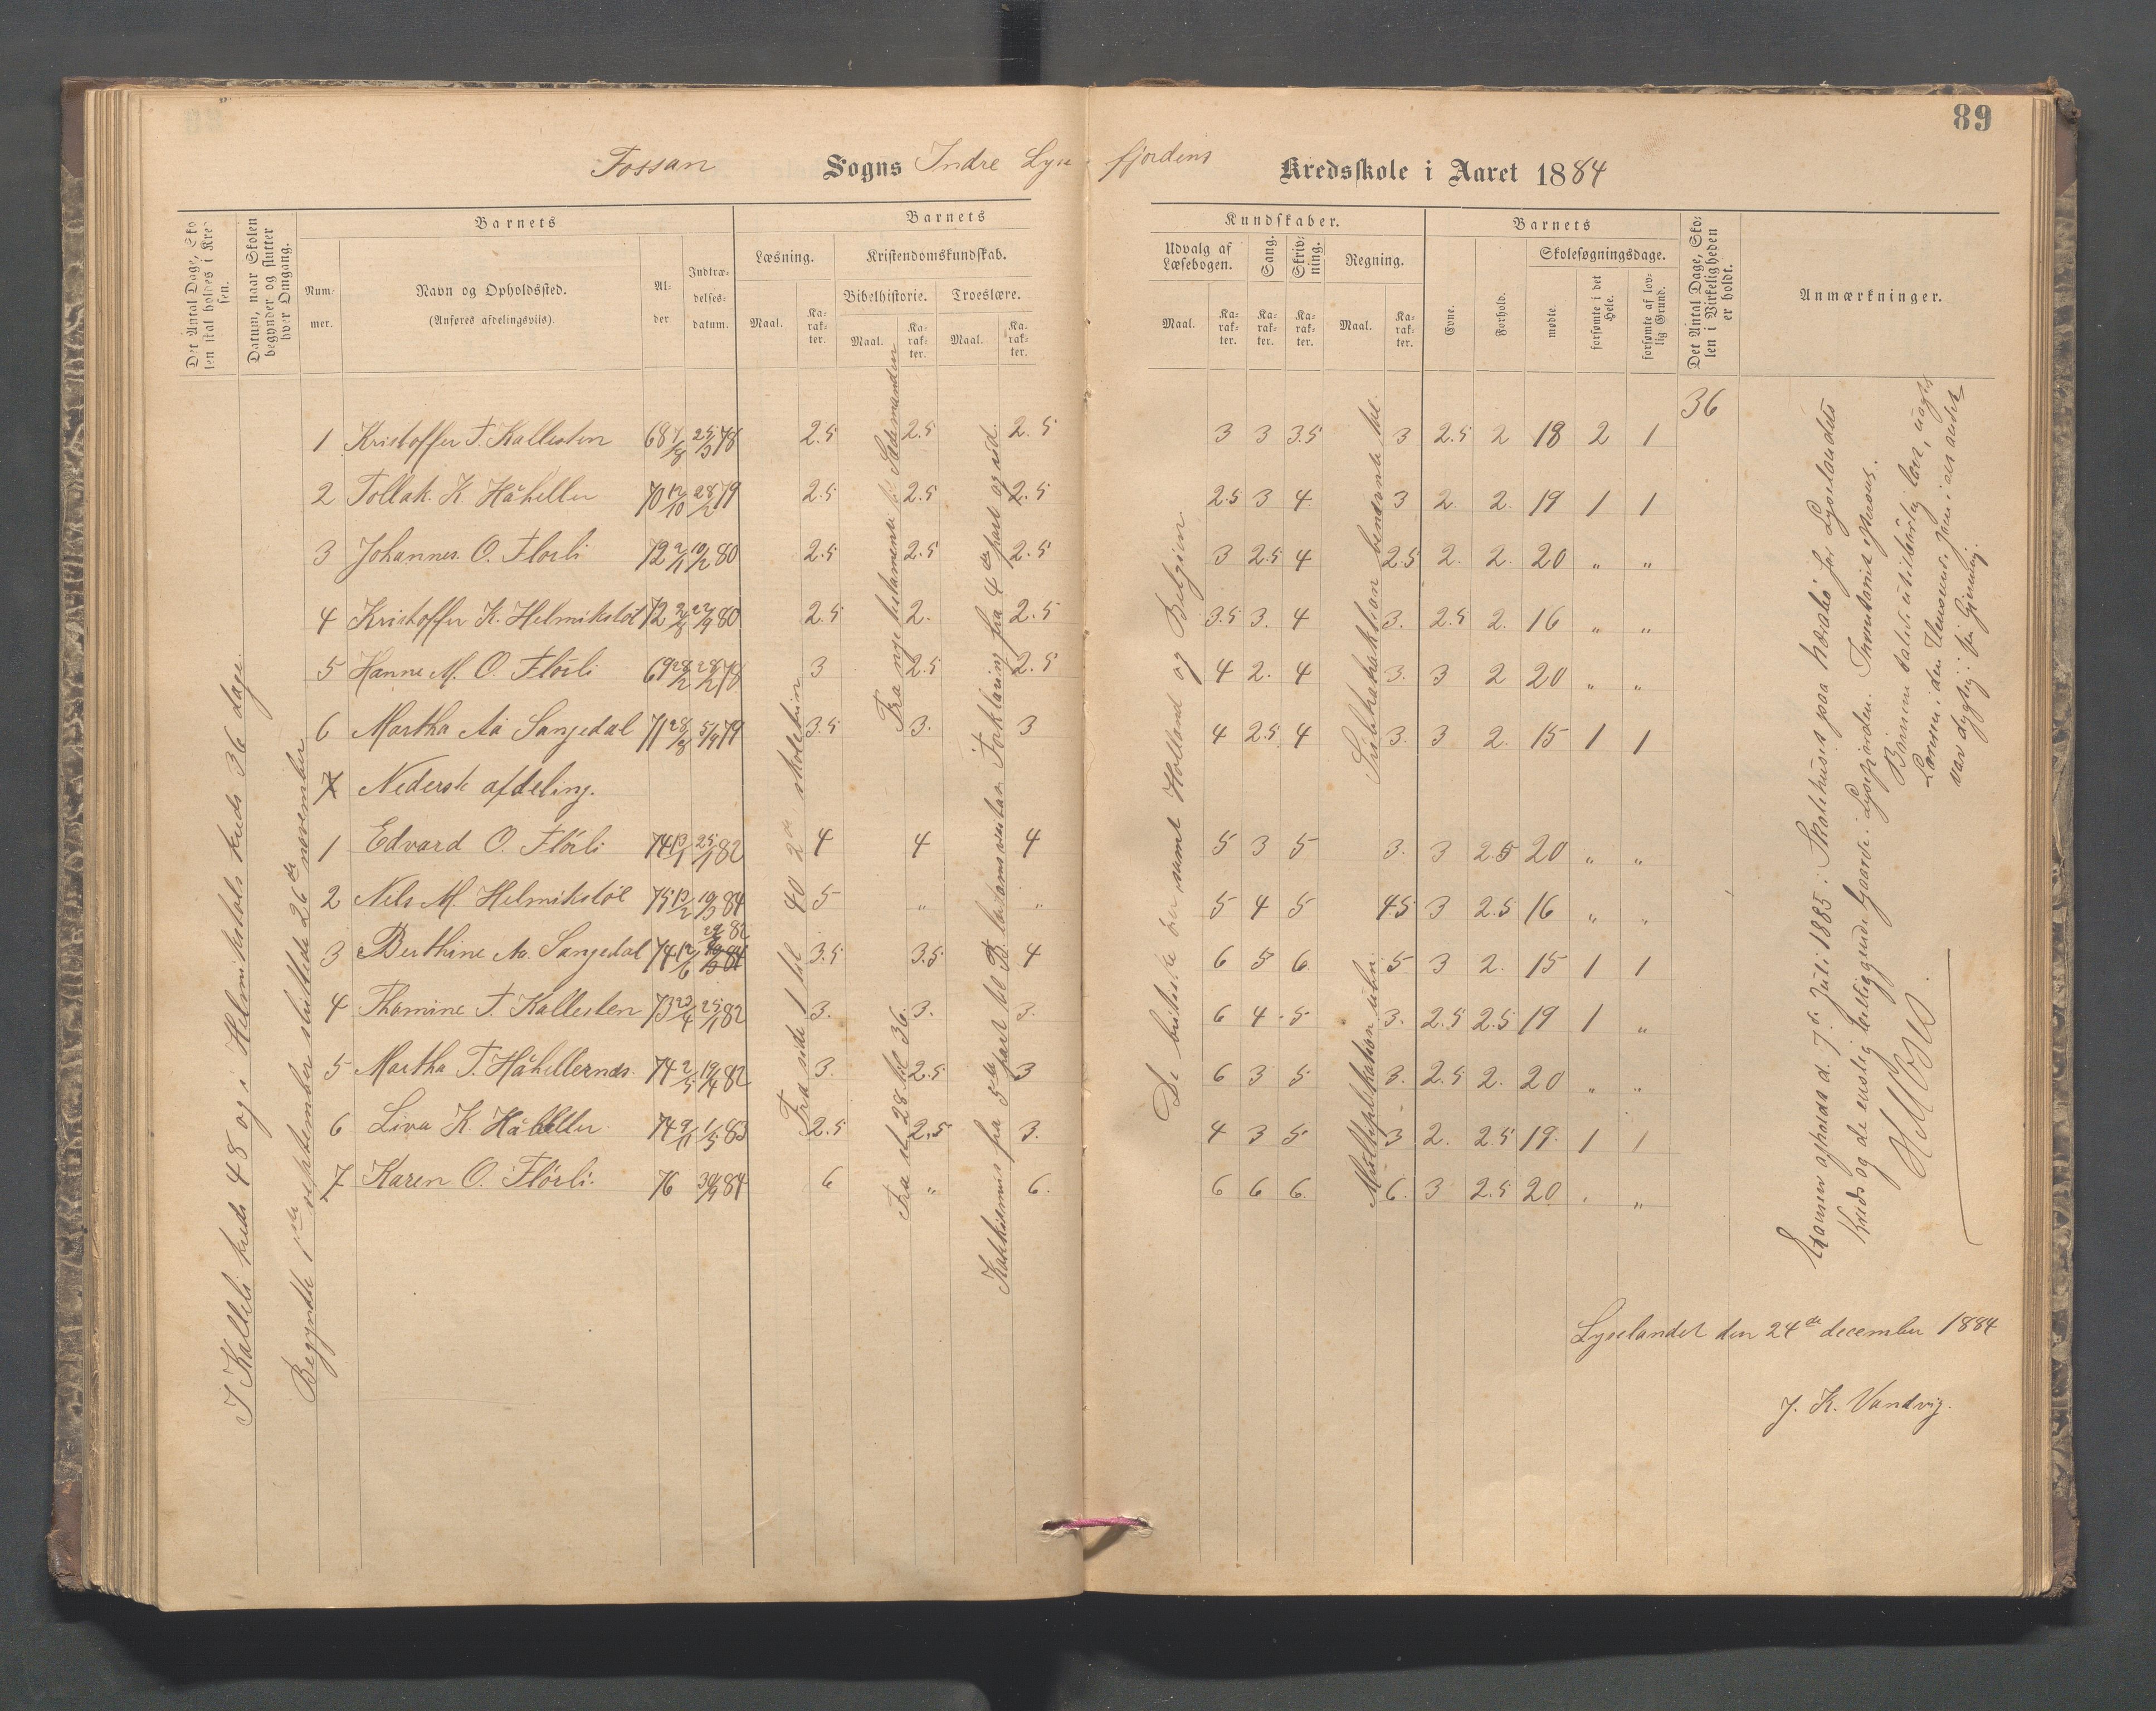 89
Fossan Sogns Indre Lyse fjordens Kredsskole i Aaret 1884
Det Antal Dage, Skolen skal holdes i Kredsen.
Datum, naar Skolen begynder og slutter hver Omgang.
Barnets
Nummer.
Navn og Opholdssted.
(Anføres afdelingsviis).
Alder.
Indtrædelsesdatum.
Barnets Kundskaber.
Læsning.
Maal.
Karakter.
Kristendomskundskab.
Bibelhistorie.
Maal.
Karakter.
Troeslære.
Maal.
Karakter.
Udvalg af Læsebogen.
Maal.
Karakter.
Sang.
Karakter.
Skrivning.
Karakter.
Regning.
Maal.
Karakter.
Barnets
Evne.
Forhold.
Skolesøgningsdage.
mødte.
forsømte i det Hele.
forsømte af lovlig Grund.
Det Antal Dage, Skolen i Virkeligheden er holdt.
Anmærkninger.
36
1 Kristoffer T. Kallesten 68 1/8 25/3 78 2.5 2.5 2.5 3 3 3.5 3 2.5 2 18 2 1
2 Tollak. K. Håheller 70 12/10 28/2 79 2.5 2.5 2.5 2.5 3 4 3 2. 2. 19 1 1
3 Johannes. O. Flörli 72 2/1 19/2 80 2.5 2.5 2.5 3 2.5 4 2.5 2. 2. 20 " "
4 Kristoffer K. Helmikstöl 72 2/8 22/9 80 2.5 2. 2.5 3.5 3. 4 3. 2.5 2. 16 " "
5 Hanne M. O. Flörli 69 28/2 28/2 78 3 2.5 2.5 4 2. 4 3. 3 2 20 " "
6 Martha Aa Sangedal 71 28/8 5/9 79 3.5 3. 3 4 2.5 4 3. 3 2. 15 1 1
7 Nederste afdeling.
1 Edvard O. Flörli 74 13/1 25/1 82 4 4 4 5 3 5 3. 3 2.5 20 " "
2 Nels M. Helmikstöl 75 13/2 19/3 84 5 " " 5 4 5 4.5 3 2.5 16 " "
3 Berthine Aa. Sangedal 74 12/6 82 3.5 3.5 4 6 5 6. 5 3 2. 15 1 1
4 Thomine T. Kallesten 73 23/4 25/1 82 3. 3. 3. 6 4 5 3. 2.5 2.5 19 1 "
5 Martha T. Håhellernds. 74 2/5 19/4 82 3. 2.5 3 6 3 5 3. 2.5 2. 20 " "
6 Liva K. Håheller 74 9/11 1/5 83 2.5 2.5 3. 4 3 5 3 2. 2.5 19. 1 1
7 Karen O. Flörli. 76 30/9 84 6 " 6. 6 6 6. 6. 3 2.5 20 " "
I Kalleli kreds 48 og i Helmikstöls kreds 36 dage.
Begyndte 1ste september sluttede 26de november
Fra side 1 til 40 2de skoletrin
Fra nye testamente til Stedmanden
Fra st 28 til 36.
Forklaring fra 4de part og ud.
Katekismus fra 5te part til
De britiske öer samt Holland og Belgien
Subtraktion benevnte tal.
Multiplikation uben.
Examen afholdt d. 7d. Juli 1885. Skolehuset paa
Kreds og de enslig beliggende Gaarde i Lysefjorden.
Lyselandet den 24de december 1884
J. K. Vandvig.